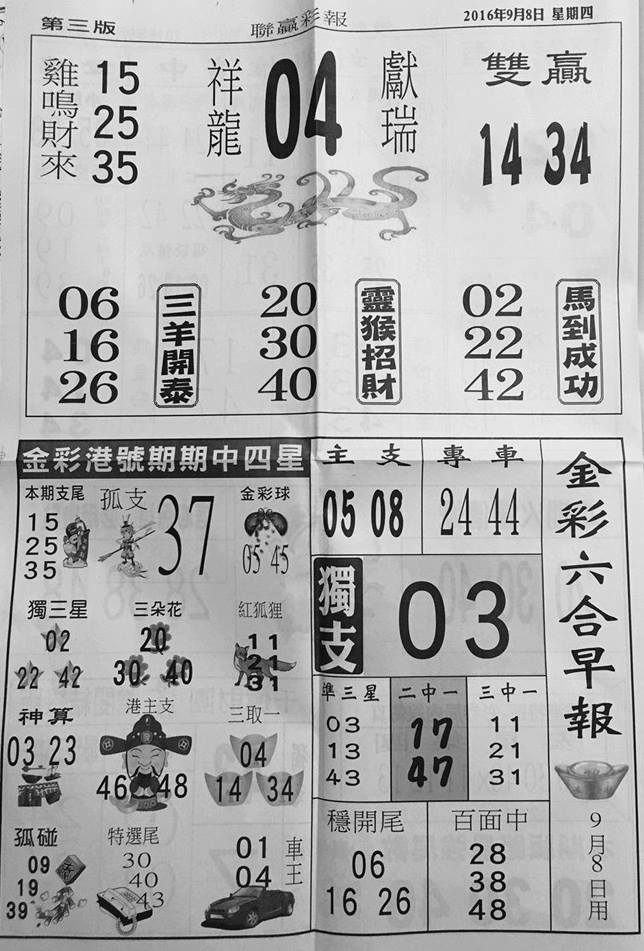 第三版
聯贏彩報
2016年9月8日 星期四
雞鳴財來
15
25
35
祥龍
04
獻瑞
雙贏
14 34
06
16
26
三羊開泰
20
30
40
靈猴招財
02
22
42
馬到成功
金彩港號期期中四星
本期支尾
15
25
35
孤支
37
金彩球
05 45
獨三星
02
22 42
三朵花
20
30 40
紅狐狸
11
21
31
神算
03 23
港主支
46 48
三取一
04
14 34
孤碰
09
19
39
特選尾
30
40
43
01
04
車王
主支
05 08
專車
24 44
獨支
03
準三星
03
13
43
二中一
17
47
三中一
11
21
31
穩開尾
06
16 26
百面中
28
38
48
金彩六合早報
9月8日用